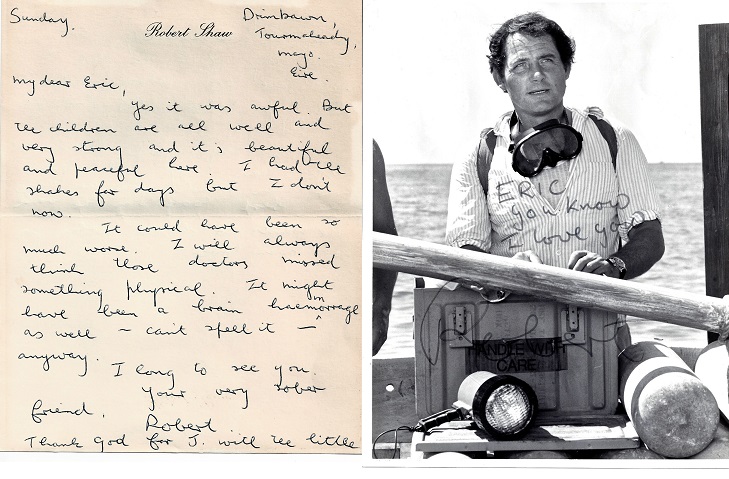 Sunday.
Robert Shaw
Drimbawn,
Tourmakeady,
Mayo.
Eire.
My dear Eric,
Yes it was awful. But
the children are all well and
very strong and it is beautiful
and peaceful here. I had the
shakes for days but I don't
now.
It could have been so
much worse. I will always
think those doctors missed
something physical. It might
have been a brain haemorrage
as well – can't spell it –
anyway.
I long to see you.
Your very sober
friend.
Robert
Thank God for J. with the little
ERIC
you know
I love you
Robert
HANDLE WITH
CARE